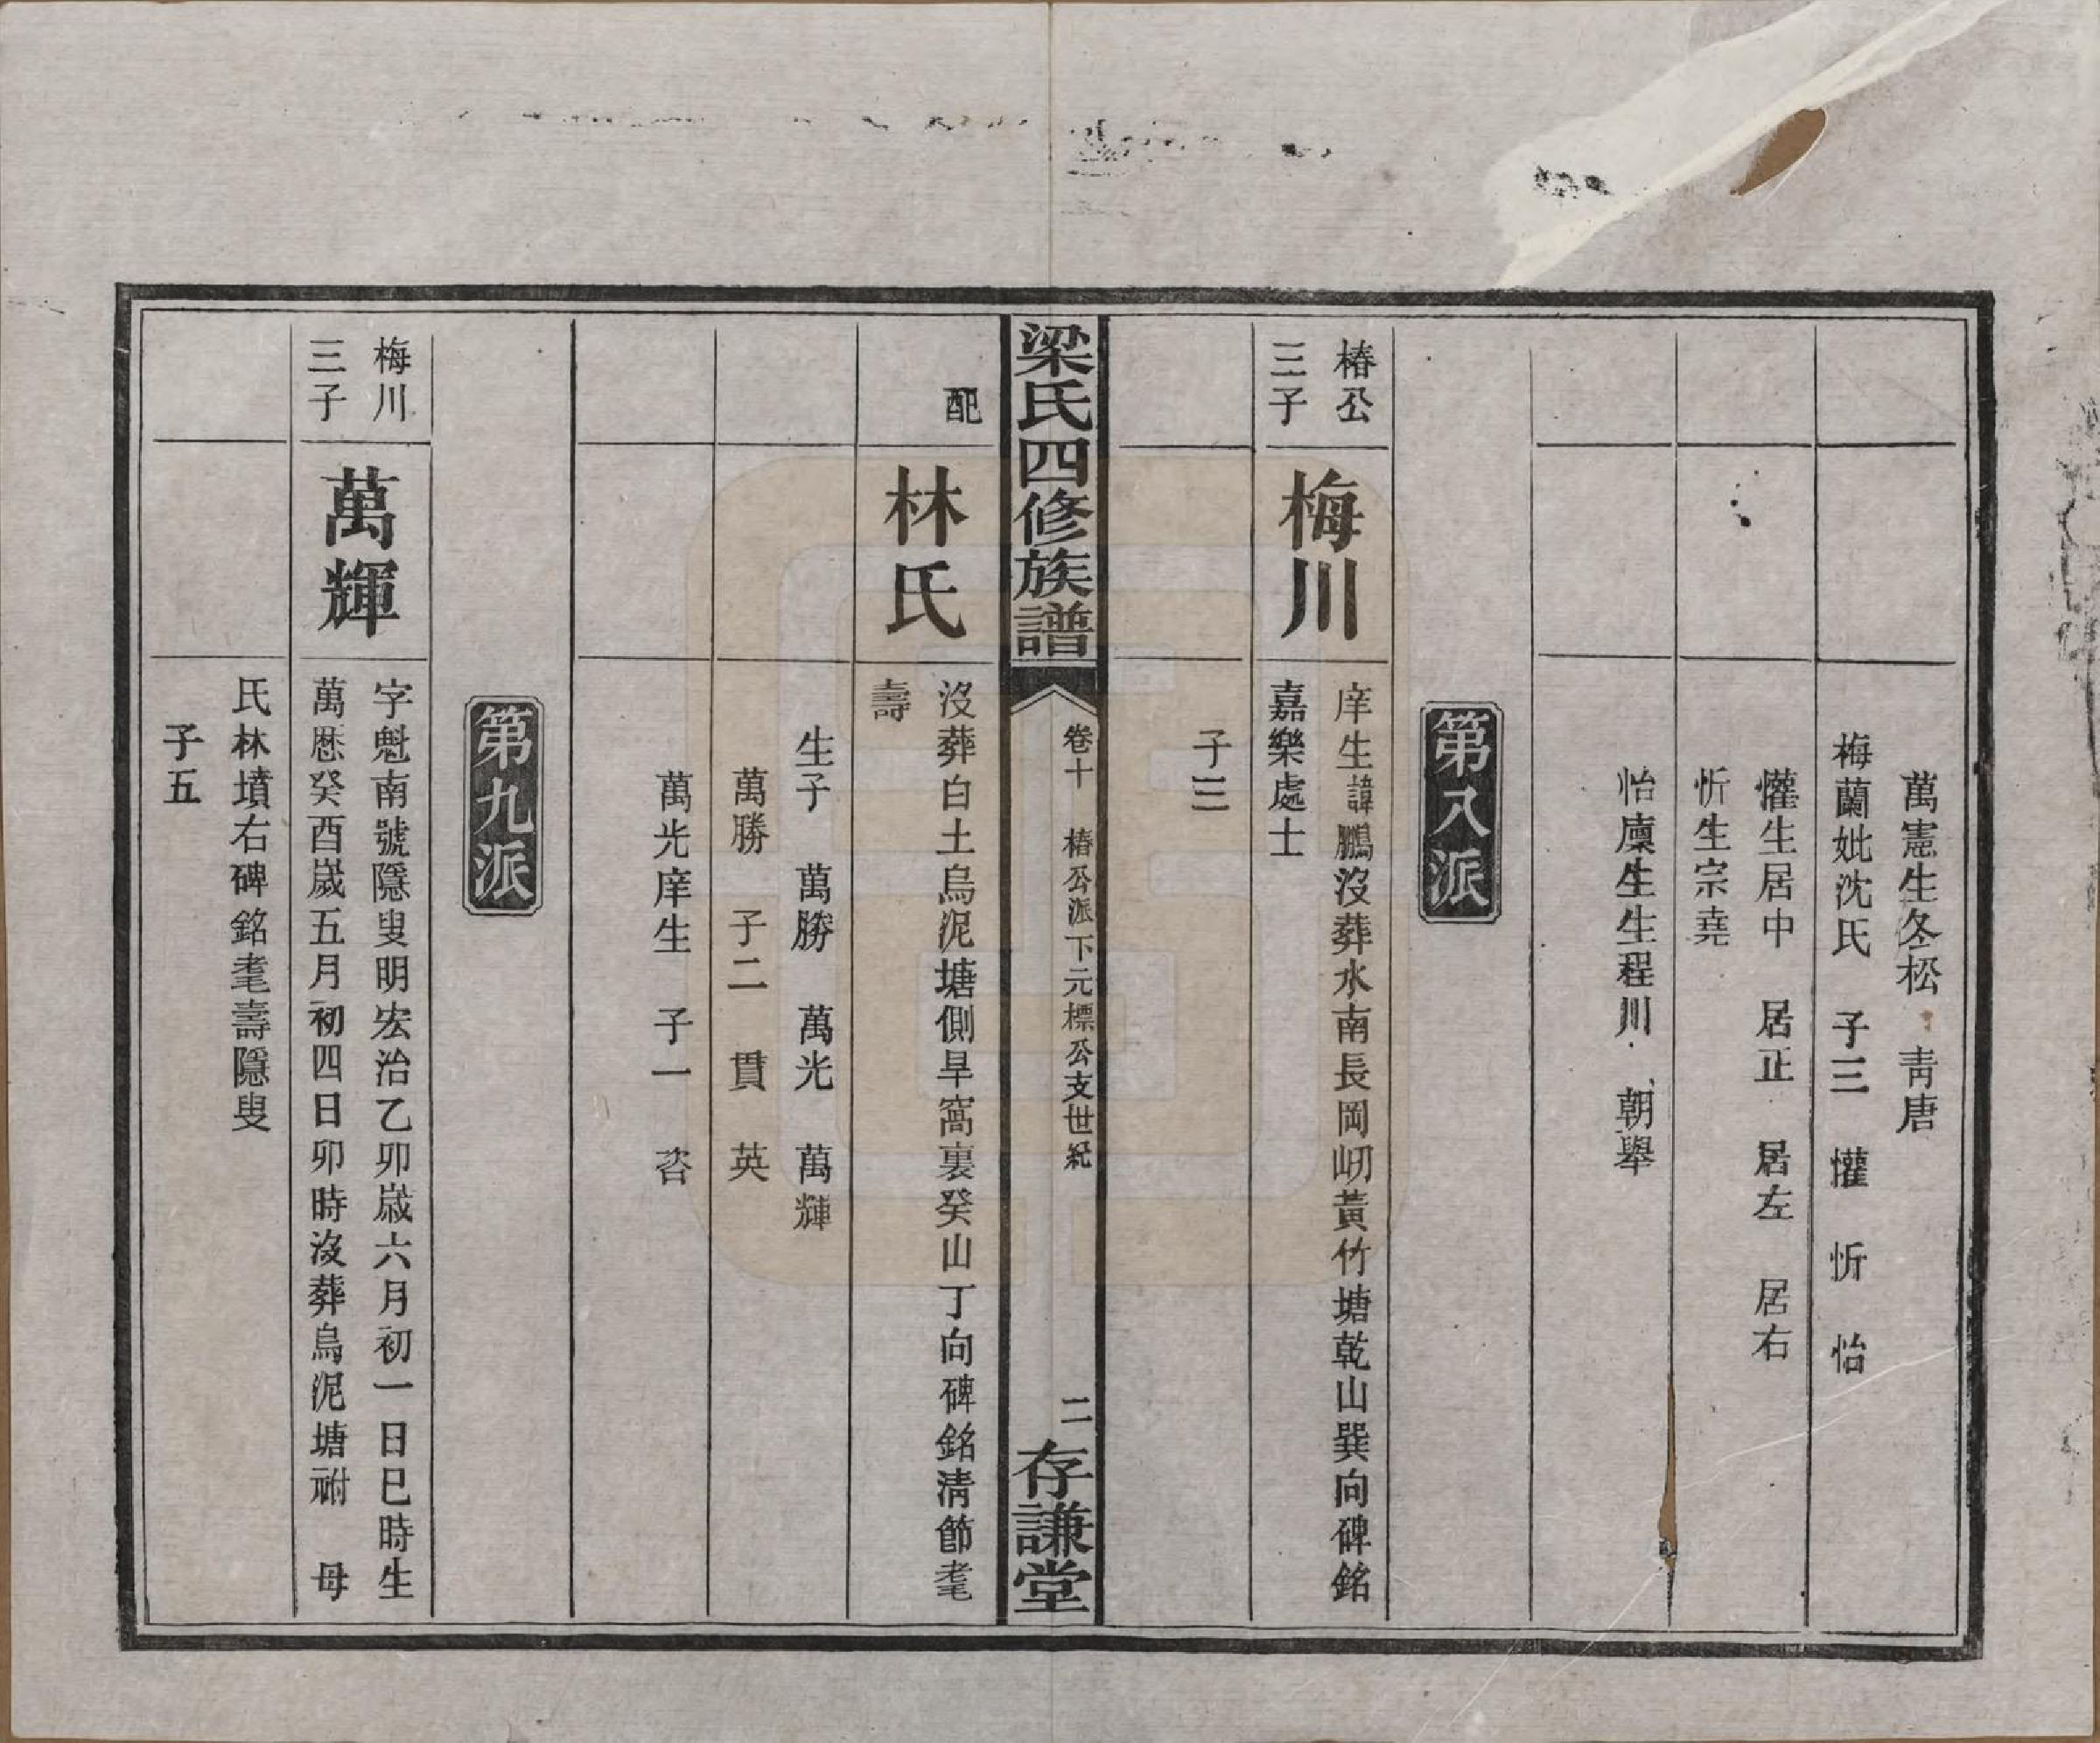 萬憲生冬松　青唐
梅蘭妣沈氏　子三　懽　忻　怡
懽生居中　居正　居左　居右
忻生宗堯
怡廩生生程川　朝舉
第八派
椿公
三子
梅川
庠生諱鵬沒葬水南長岡屻黃竹塘乾山巽向碑銘
嘉樂處士
子三
梁氏四修族譜
卷十　椿公派下元標公支世紀
二
存謙堂
配
林氏
沒葬白土烏泥塘側旱窩裏癸山丁向碑銘清節耄
壽
生子　萬勝　萬光　萬輝
萬勝　子二　貫　英
萬光庠生　子一　咨
第九派
梅川
三子
萬輝
字魁南號隱叟明宏治乙卯嵗六月初一日巳時生
萬厯癸酉嵗五月初四日卯時沒葬烏泥塘祔　母
氏林墳右碑銘耄壽隱叟
子五